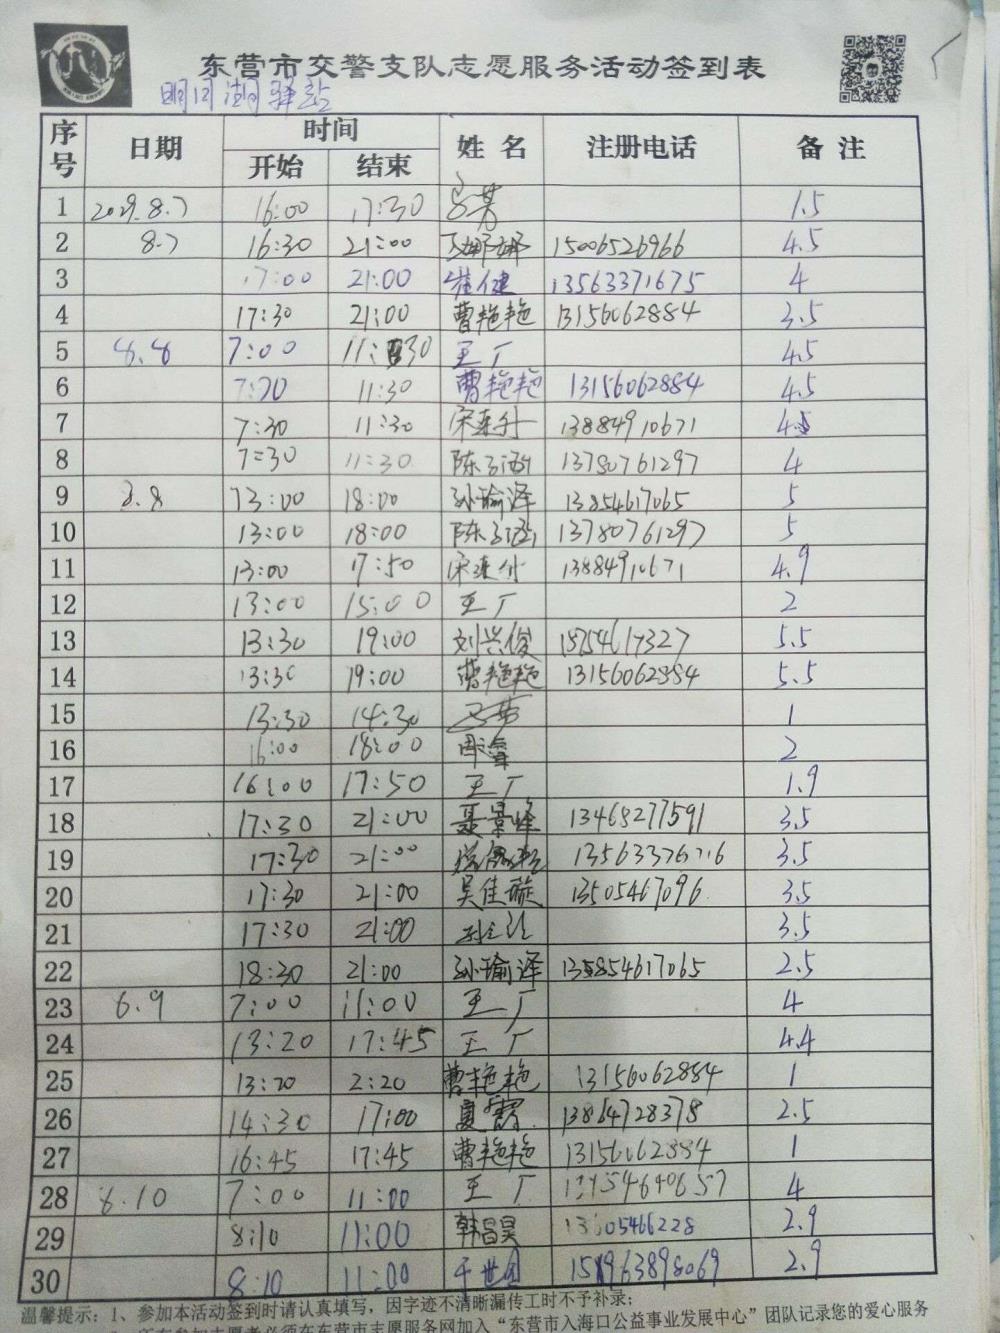 东营市交警支队志愿服务活动签到表
明月湖驿站
序号 日期 时间 姓名 注册电话 备注
开始 结束
1 2029.8.7 16:00 17:30 1.5
2 8.7 16:30 21:00 15006526966 4.5
3 17:00 21:00 崔健 13563371675 4
4 17:30 21:00 曹艳艳 13156062884 3.5
5 8.8 7:00 11:30 王广 4.5
6 7:00 11:30 曹艳艳 13156062884 4.5
7 7:30 11:30 宋连升 13884910671 4.5
8 7:30 11:30 陈 13780761297 4
9 8.8 13:00 18:00 孙瑜泽 13854617065 5
10 13:00 18:00 陈 13780761297 5
11 13:00 17:50 宋连升 13884910671 4.9
12 13:00 15:00 王广 2
13 13:30 19:00 刘兴俊 15754617327 5.5
14 13:30 19:00 曹艳艳 13156062884 5.5
15 13:30 14:30 1
16 16:00 18:00 周 2
17 16:00 17:50 王广 1.9
18 17:30 21:00 聂景峰 13468277591 3.5
19 17:30 21:00 3.5
20 17:30 21:00 吴佳璇 13505467096 3.5
21 17:30 21:00 3.5
22 18:30 21:00 孙瑜泽 13854617065 2.5
23 8.9 7:00 11:00 王广 4
24 13:20 17:45 王广 4.4
25 13:20 2:20 曹艳艳 13156062884 1
26 14:30 17:00 夏霄 13864728378 2.5
27 16:45 17:45 曹艳艳 13156062884 1
28 8.10 7:00 11:00 王广 4
29 8:10 11:00 韩昌昊 2.9
30 8:10 11:00 于世 2.9
温馨提示：1、参加本活动签到时请认真填写，因字迹不清晰漏传工时不予补录；
2、所有参加志愿者必须在东营市志愿服务网加入“东营市入海口公益事业发展中心”团队记录您的爱心服务